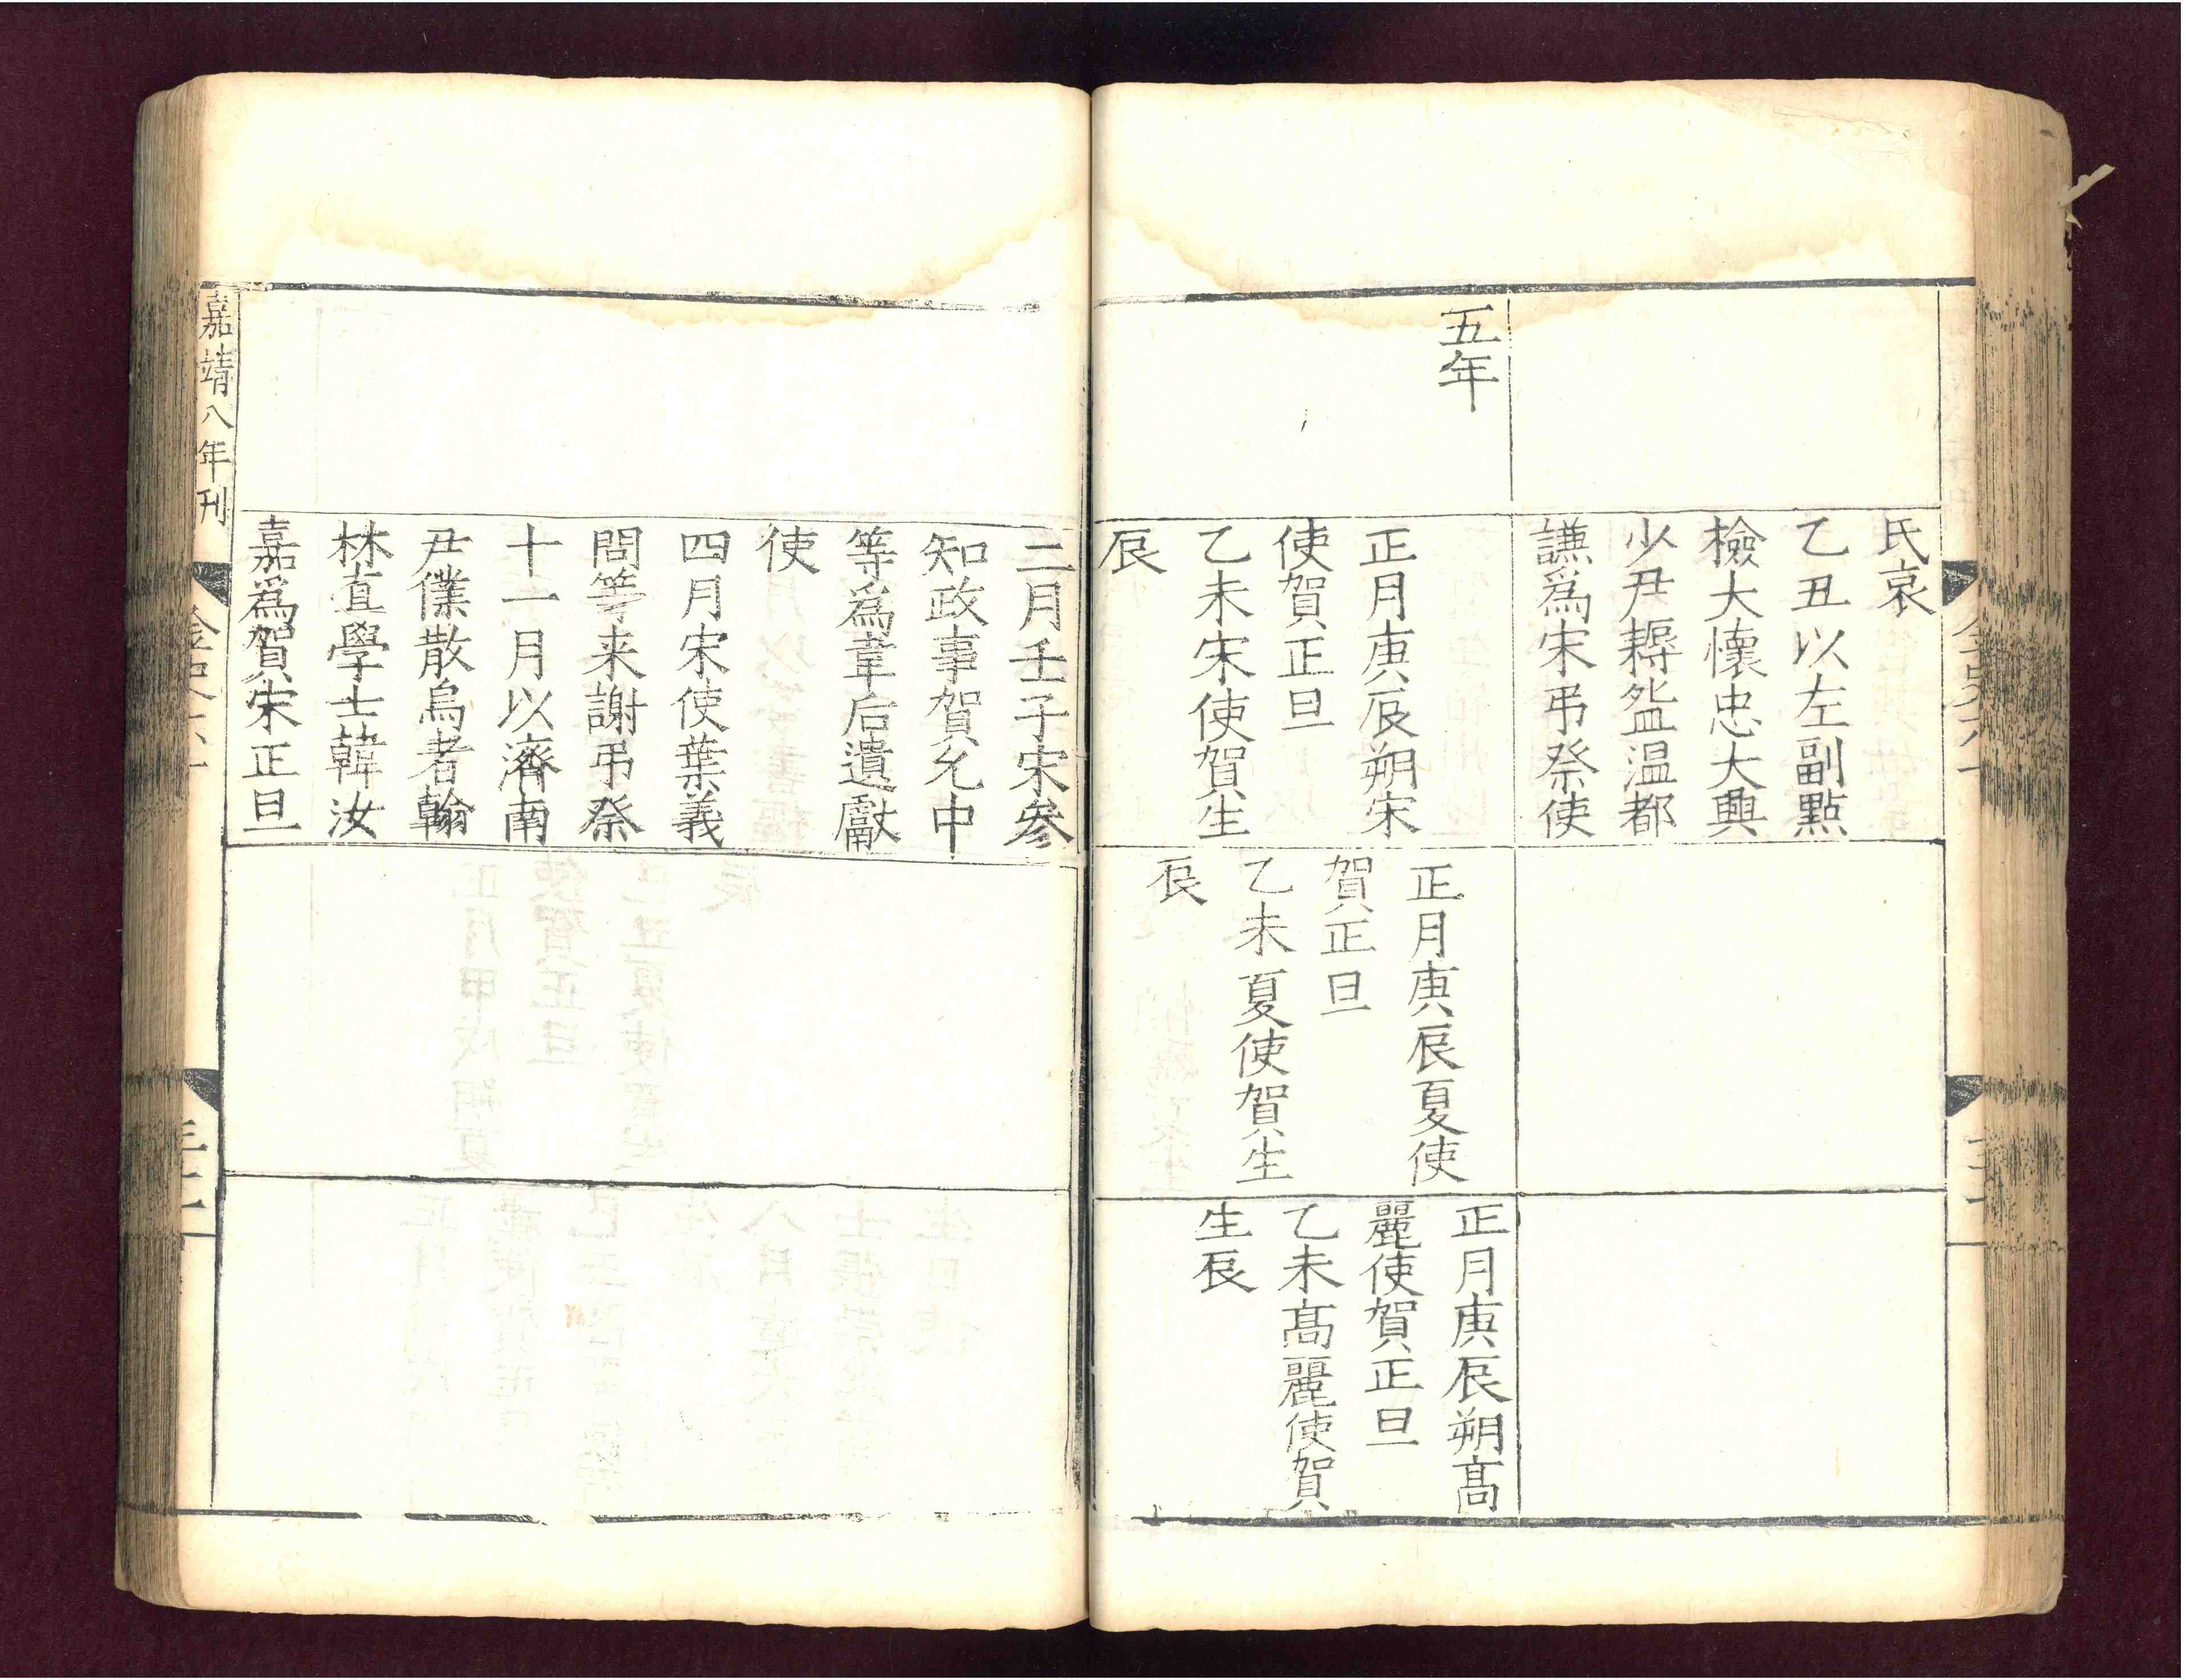 氏哀
乙丑以左副點
檢大懷忠大興
少尹耨盌温都
謙爲宋弔祭使
五年
正月庚辰朔宋
使賀正旦
乙未宋使賀生
辰
正月庚辰夏使
賀正旦
乙未夏使賀生
辰
正月庚辰朔髙
麗使賀正旦
乙未髙麗使賀
生辰
二月壬子宋參
知政事賀允中
等爲韋后遺獻
使
四月宋使葉義
問等来謝弔祭
十一月以濟南
尹僕散烏者翰
林直學士韓汝
嘉爲賀宋正旦
嘉靖八年刊